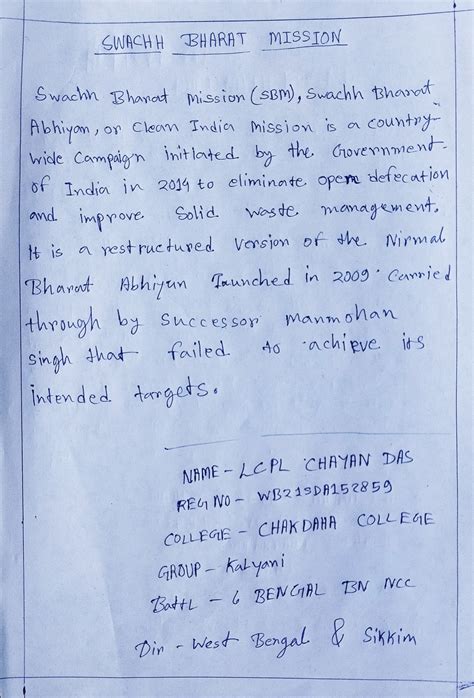 SWACHH BHARAT MISSION
Swachh Bharat Mission (SBM), Swachh Bharat
Abhiyan, or Clean India Mission is a country-
wide Campaign initiated by the Government
of India in 2014 to eliminate open defecation
and improve Solid waste management.
It is a restructured version of the Nirmal
Bharat Abhiyan launched in 2009. Carried
through by Successor Manmohan
Singh that failed to achieve its
intended targets.
NAME - LCPL CHAYAN DAS
REG NO - WB21SDA152859
COLLEGE - CHAKDAHA COLLEGE
GROUP - Kalyani
Battl - 6 BENGAL BN NCC
Dir - West Bengal & Sikkim